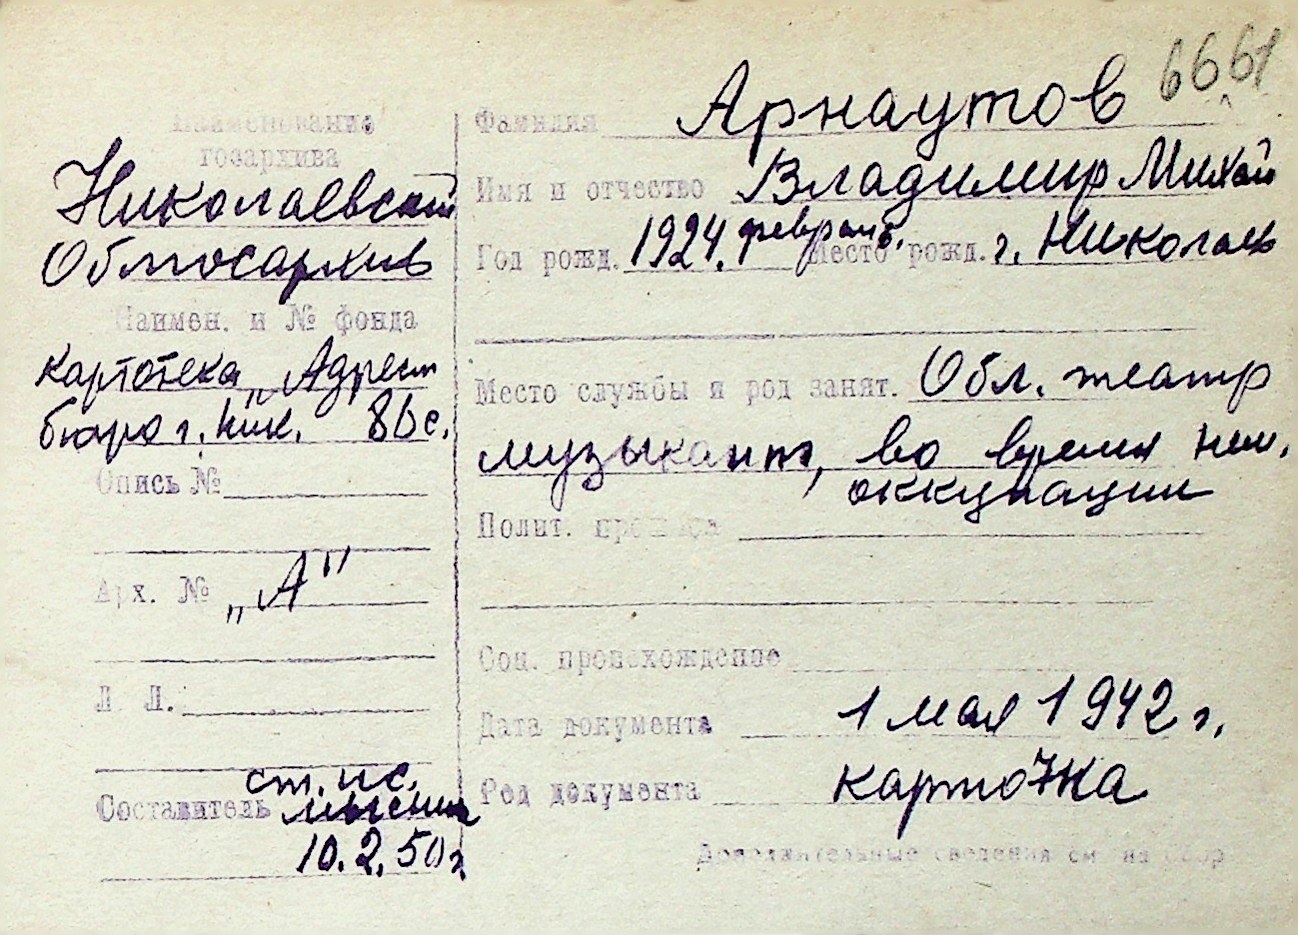 6661
Наименование
госархива
Николаевский
Облгосархив
Наимен. и № фонда
Картотека „Адресн
бюро г. Ник. 86с.
Опись №
Арх. № „А"
Л. Л.
ст. ис.
Составитель
10.2.50г
Фамилия Арнаутов
Имя и отчество Владимир Михай
Год рожд. 1924. февраль. Место рожд. г. Николаев
Место службы и род занят. Обл. театр
музыкант, во время нем.
оккупации
Полит. окраска
Соц. происхождение
Дата документа 1 мая 1942 г.
Род документа карточка
Дополнительные сведения см. на обор.